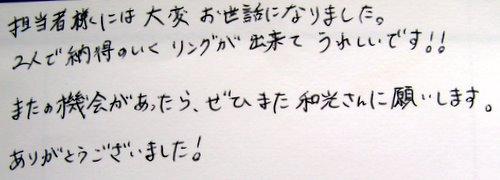 担当者様には大変お世話になりました。
2人で納得のいくリングが出来てうれしいです!!
またの機会があったら、ぜひまた和光さんに願いします。
ありがとうございました!